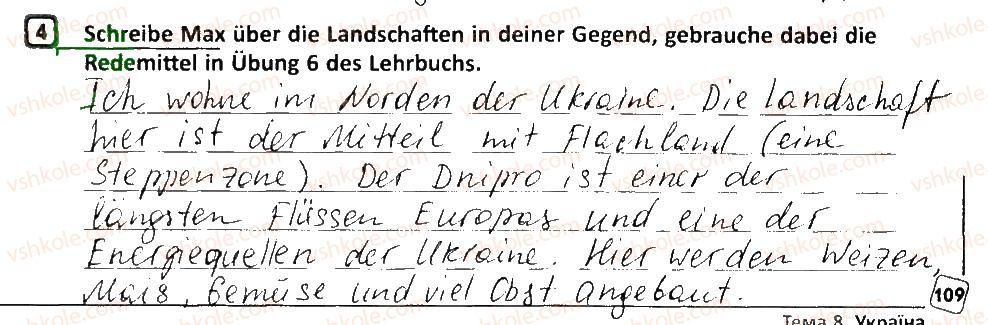 4 Schreibe Max über die Landschaften in deiner Gegend, gebrauche dabei die
Redemittel in Übung 6 des Lehrbuchs.
Ich wohne im Norden der Ukraine. Die Landschaft
hier ist der Mitteil mit Flachland (eine
Steppenzone). Der Dnipro ist einer der
längsten Flüssen Europas und eine der
Energiequellen der Ukraine. Hier werden Weizen,
Mais, Gemüse und viel Obst angebaut.
109
Тема 8. Україна